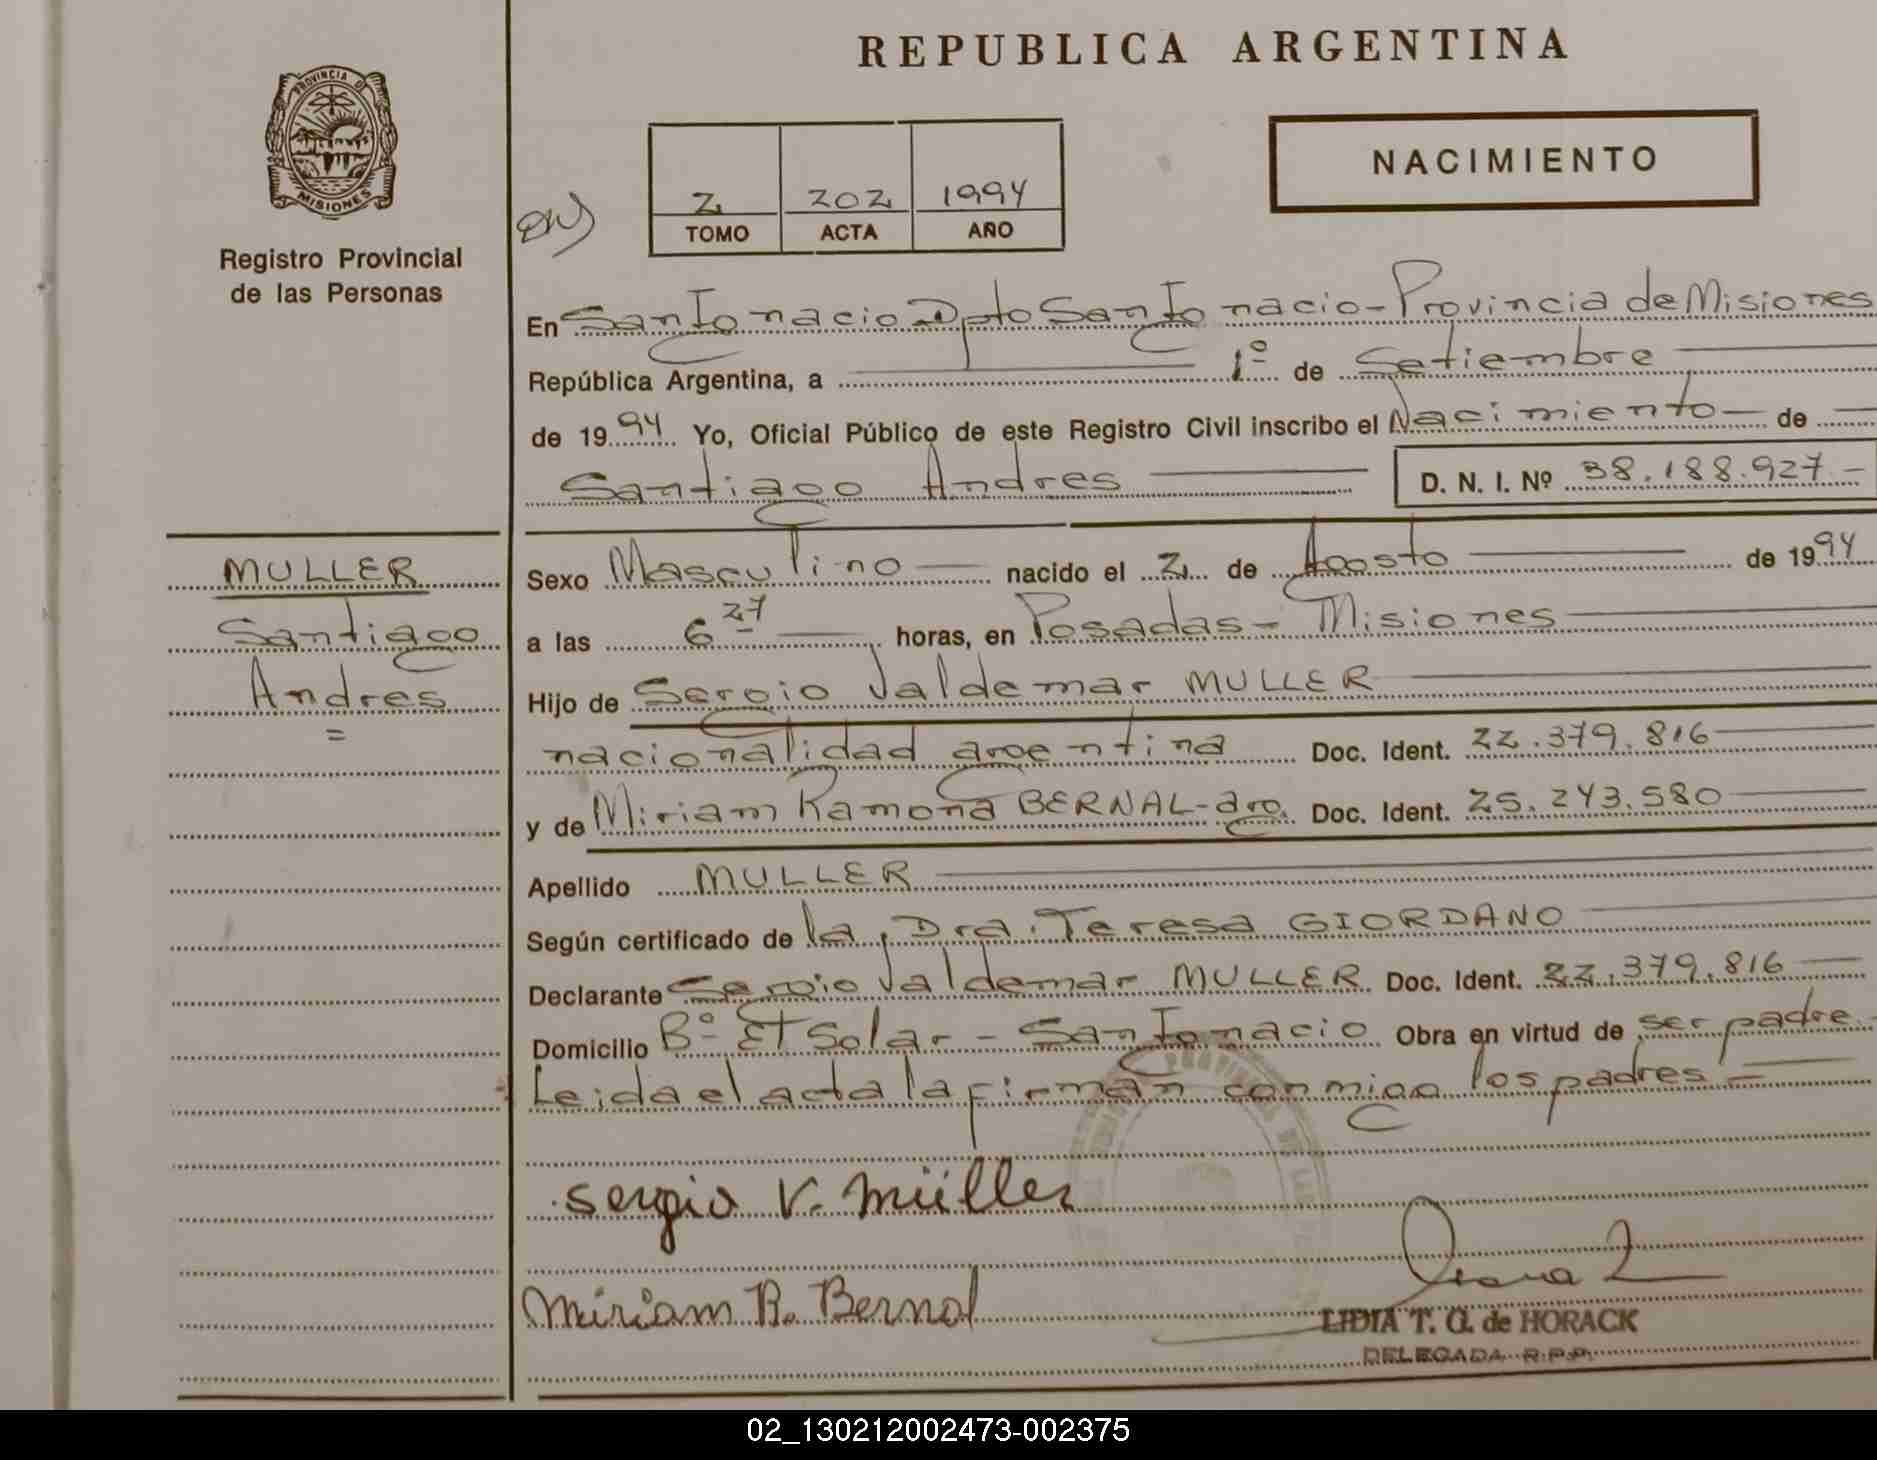 REPUBLICA ARGENTINA
PROVINCIA DE
MISIONES
Registro Provincial
de las Personas
2 202 1994
TOMO ACTA AÑO
NACIMIENTO
En San Ignacio Dpto San Ignacio - Provincia de Misiones
República Argentina, a 1º de Setiembre
de 1994 Yo, Oficial Público de este Registro Civil inscribo el Nacimiento de
Santiago Andres D. N. I. Nº 38.188.927.-
MULLER
Santiago
Andres
=
Sexo Masculino nacido el 2 de Agosto de 1994
a las 6 27 horas, en Posadas - Misiones
Hijo de Sergio Valdemar MULLER
nacionalidad argentina Doc. Ident. 22.379.816
y de Miriam Ramona BERNAL - arg. Doc. Ident. 25.243.580
Apellido MULLER
Según certificado de la Dra. Teresa GIORDANO
Declarante Sergio Valdemar MULLER Doc. Ident. 22.379.816
Domicilio Bº El Solar - San Ignacio Obra en virtud de ser padre.-
Leida el acta la firman conmigo los padres
sergio V. müller
Miriam R. Bernal
LIDIA T. G. de HORACK
DELEGADA R.P.P.
02_130212002473-002375